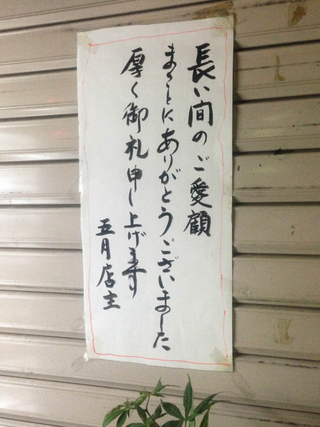 長い間のご愛顧
まことにありがとうございました
厚く御礼申し上げます
五月店主